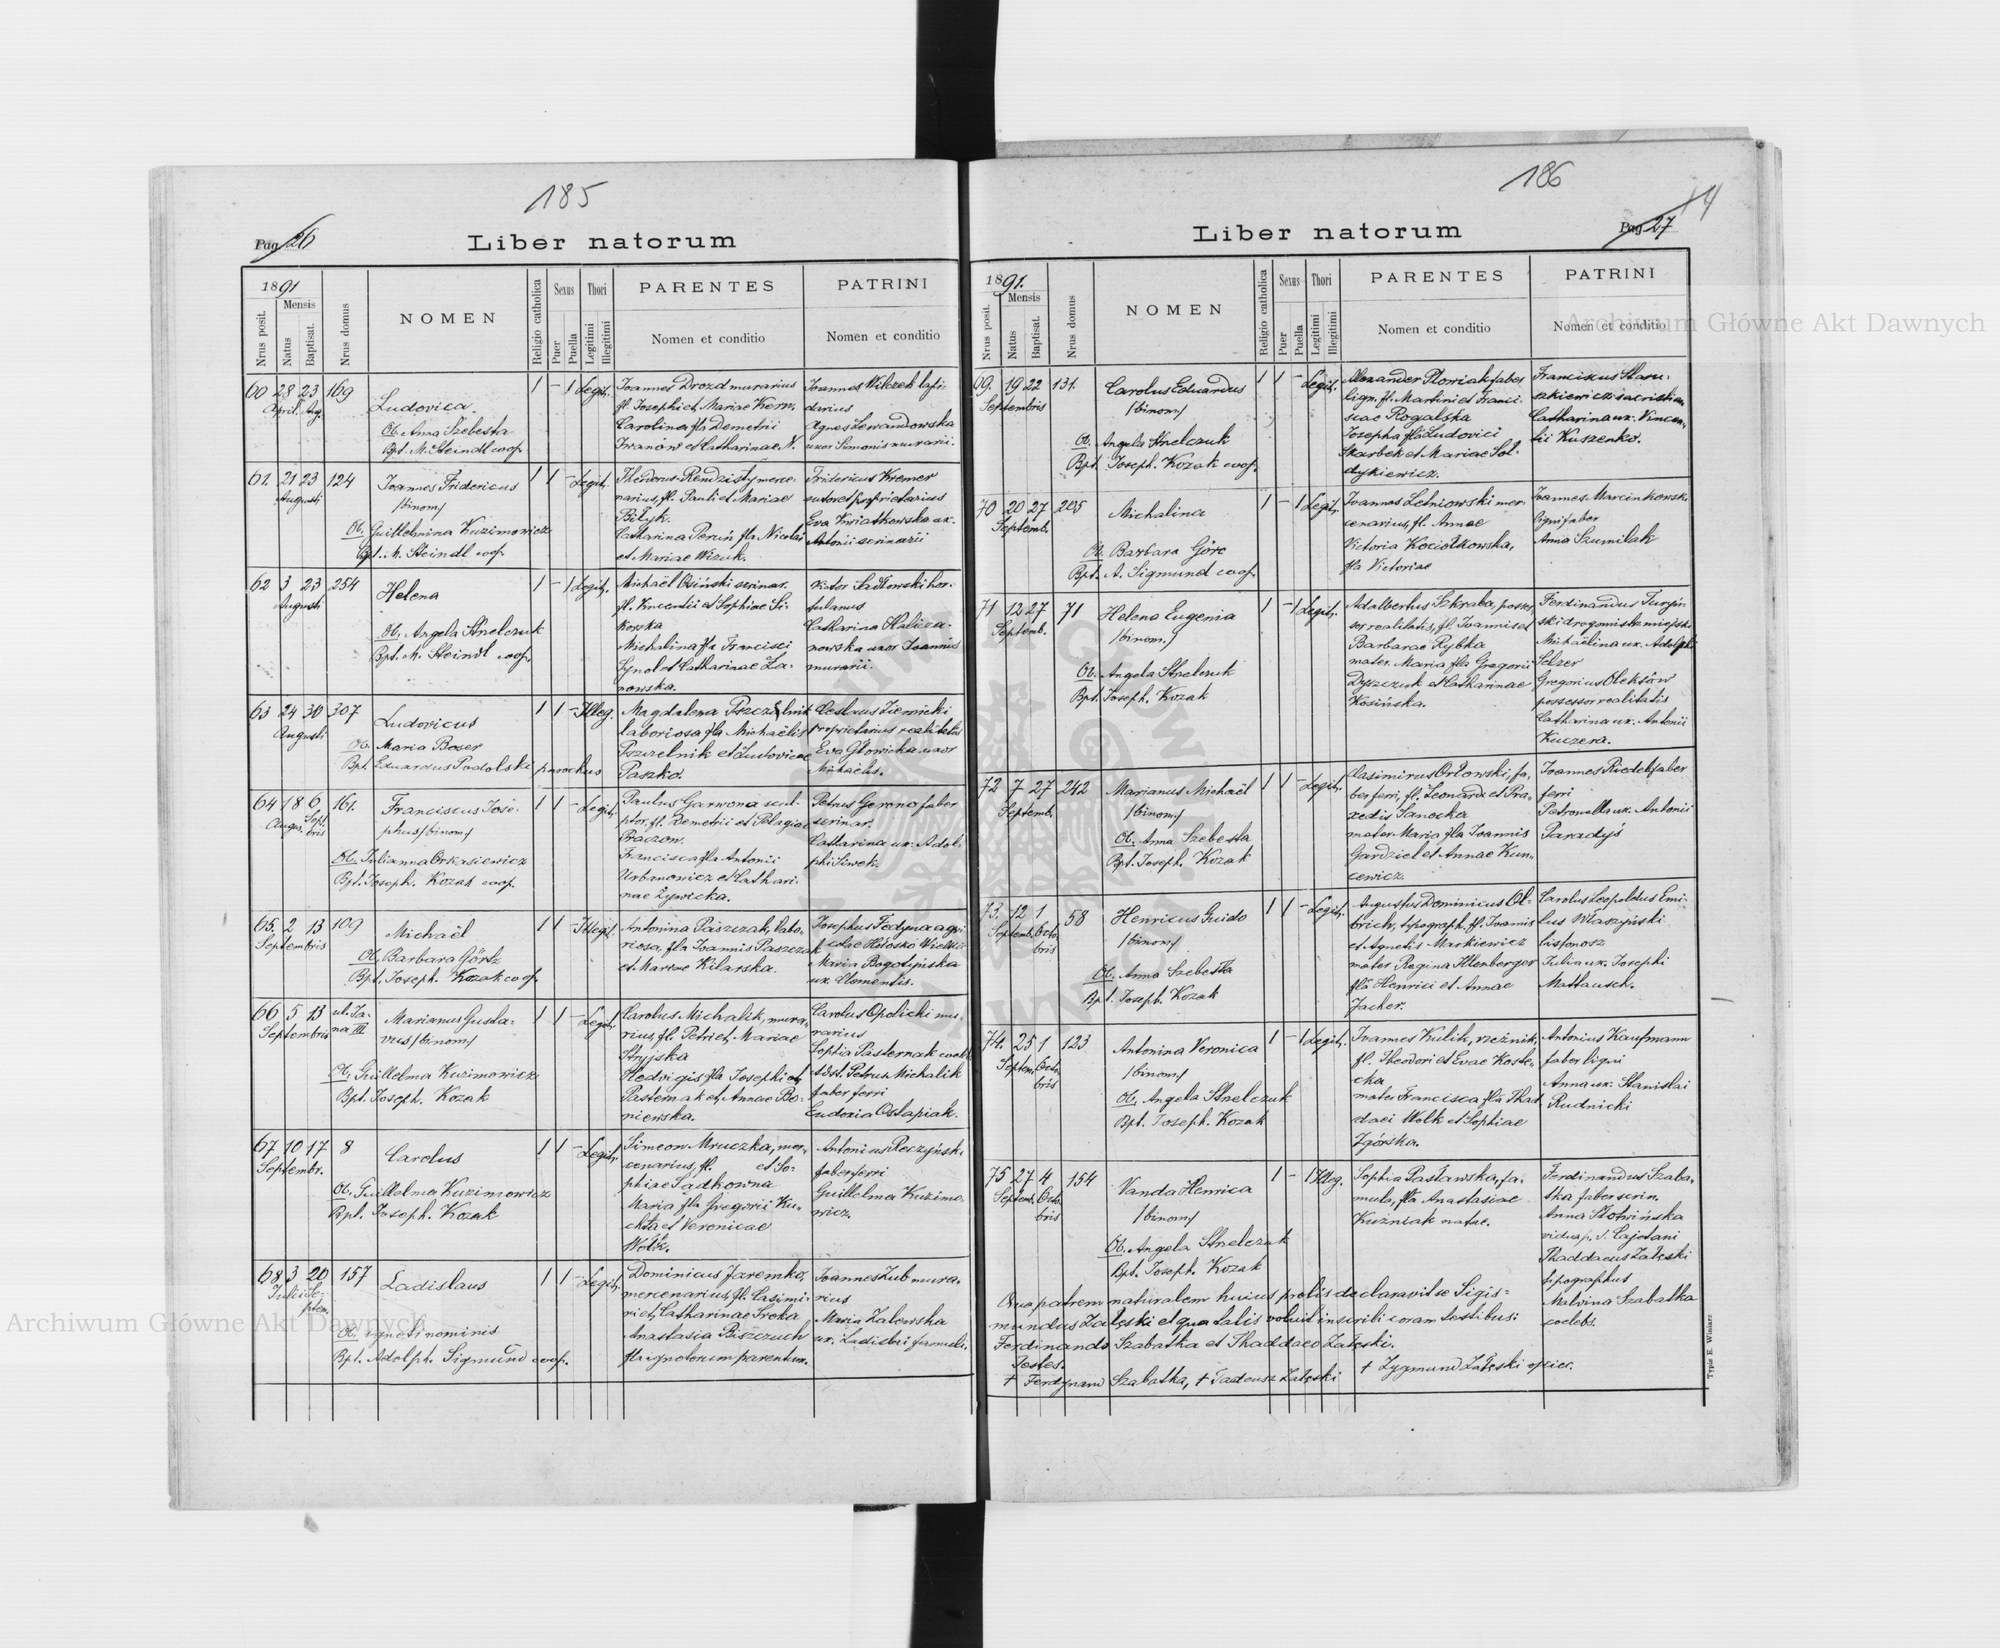 185
Pag 26
Liber natorum
1891
Mensis
Nrus posit.
Natus
Baptisat.
Nrus domus
NOMEN
Religio catholica
Sexus
Puer
Puella
Thori
Legitimi
Illegitimi
PARENTES
Nomen et conditio
PATRINI
Nomen et conditio
60 28 23 169 Ludovica 1 - 1 Legit.
April. Aug.
Ob. Anna Szebesta
Bpt. M. Steindl coop.
Joannes Drozd murarius
fl. Josephi et Mariae Kern,
Carolina fla Demetrii
Iwanów et Catharinae N.
Joannes Wilczek lapi-
darius
Agnes Lewandowska
uxor Simonis murarii.
61. 21 23 124 Joannes Fridericus 1 1 - Legit.
Augusti
/binom/
Ob. Guillelmina Kuzimowicz
Bpt. M. Steindl coop.
Theodorus Rendzisty merce-
narius, fl. Pauli et Mariae
Biłyk.
Catharina Peruń fla Nicolai
et Mariae Wizuk.
Fridericus Kremer
sutor et proprietarius
Eva Kwiatkowska ux.
Antonii scrinarii
62 3 23 254 Helena 1 - 1 Legit.
Augusti
Ob. Angela Strelczuk
Bpt. M. Steindl coop.
Michaël Osiński scrinar.
fl. Vincentii et Sophiae Si-
korska
Michalina fla Francisci
Synol et Catharinae Za-
nowska.
Victor Sadłowski hor-
tulanus
Catharina Haliza-
nowska uxor Joannis
murarii.
63 24 30 307 Ludovicus 1 1 - Illeg.
Augusti
Ob. Maria Boser
Bpt. Eduardus Podolski parochus
Magdalena Pszczelnik
laboriosa fla Michaëlis
Pszczelnik et Ludovicae
Paszko.
Ceslaus Ziemicki
proprietarius realitatis
Eva Głowicka uxor
Michaëlis.
64 18 6. 161. Franciscus Jose- 1 1 - Legit.
Augus. Septbris
phus /binom/
Ob. Julianna Orkasiewicz
Bpt. Joseph. Kozak coop.
Paulus Garwona scul-
ptor, fl. Demetrii et Pelagiae
Praczow.
Francisca fla Antonii
Urbanowicz et Cathari-
nae Żywicka.
Petrus Gerono faber
scrinar.
Catharina ux. Adol-
phi Siwek.
65. 2 13 109 Michaël 1 1 - Illegit.
Septembris
Ob. Barbara Görtz
Bpt. Joseph. Kozak coop.
Antonina Paszczak, labo-
riosa, fla Joannis Paszczak
et Mariae Kilarska.
Josephus Fedyna agri-
colae Hołosko Wielkie
Maria Bogotyńska
ux. Clementis.
66 5 13 ul. Ja- Marianus Gusta- 1 1 - Legit.
Septembris na III
vus /binom/
Ob. Guillelma Kuzimowicz
Bpt. Joseph. Kozak
Carolus Michalik, mura-
rius, fl. Petri et Mariae
Stryjska
Hedvigis fla Josephi
Pasternak et Annae Bo-
niewska.
Carolus Opolicki mu-
rarius
Sophia Pasternak
Adst. Petrus Michalik
faber ferri
Eudoxia Ostapiak.
67 10 17 8 Carolus 1 1 - Legit.
Septembr.
Ob. Guillelma Kuzimowicz
Bpt. Joseph. Kozak
Simeon Mruczka, mer-
cenarius, fl. et So-
phiae Sądkowna
Maria fla Gregorii Ku-
chta et Veronicae
Wołk.
Antonius Reczyński
faber ferri
Guillelma Kuzimo-
wicz.
68 3 20 157 Ladislaus 1 1 - Legit.
Julii Septem.
Ob. ignoti nominis
Bpt. Adolph. Sigmund coop.
Dominicus Jaremko,
mercenarius, fl. Casimi-
ri et Catharinae Sreka
Anastasia Biszczuch
fla ignotorum parentum.
Joannes Zub mura-
rius
Maria Zalewska
ux. Ladislai famuli.
186
14
Pag 27
Liber natorum
1891.
Mensis
Nrus posit.
Natus
Baptisat.
Nrus domus
NOMEN
Religio catholica
Sexus
Puer
Puella
Thori
Legitimi
Illegitimi
PARENTES
Nomen et conditio
PATRINI
Nomen et conditio
69. 19 22 131. Carolus Eduardus 1 1 - Legit.
Septembris
/binom/
Ob. Angela Strelczuk
Bpt. Joseph. Kozak coop.
Alexander Płowiak faber
lign. fl. Martini et Franci-
scae Rogalska
Josepha fla Ludovici
Skarbek et Mariae Soł-
dykiewicz.
Franciscus Staru-
szkiewicz sacristian.
Catharina ux. Vincen-
tii Kuszenko.
70 20 27 205 Michalina 1 - 1 Legit.
Septemb.
Ob. Barbara Görc
Bpt. A. Sigmund coop.
Joannes Leśniowski mer-
cenarius, fl. Annae
Victoria Kociołkowska,
fla Victoriae
Joannes Marcinkowski
lignifaber
Anna Szumilak
71 12 27 71 Helena Eugenia 1 - 1 Legit.
Septemb.
/binom/
Ob. Angela Strelczuk
Bpt. Joseph. Kozak
Adalbertus Szkraba, posses-
sor realitatis, fl. Joannis et
Barbarae Rybka
mater Maria fla Gregorii
Dyszczuk et Catharinae
Kosińska.
Ferdinandus Turzyń-
ski drogomistrz miejski
Michaëlina ux. Adolphi
Selzer
Gregorius Oleksów
possessor realitatis
Catharina ux. Antonii
Kuczera.
72 7 27 242 Marianus Michaël 1 1 - Legit.
Septemb.
/binom/
Ob. Anna Szebesta
Bpt. Joseph. Kozak
Casimirus Orłowski, fa-
ber ferri, fl. Leonardi et Pra-
xedis Sanocka
mater Maria fla Joannis
Gardziel et Annae Kun-
cewicz.
Joannes Riedel faber
ferri
Petronella ux. Antonii
Paradyś
73. 12 1 58 Henricus Guido 1 1 - Legit.
Septemb. Octobris
/binom/
Ob. Anna Szebesta
Bpt. Joseph. Kozak
Augustus Dominicus Ol-
brich, typograph. fl. Joannis
et Agnetis Markiewicz
mater Regina Illenberger
fla Henrici et Annae
Jacher.
Carolus Leopoldus Emi-
lius Właszyński
lisfonosz
Julia ux. Josephi
Mattausch.
74. 25 1 123 Antonina Veronica 1 - 1 Legit.
Septem. Octobris
/binom/
Ob. Angela Strelczuk
Bpt. Joseph. Kozak
Joannes Kulik, rzeźnik,
fl. Theodori et Evae Koste-
cka
mater Francisca fla Thad-
daei Wolk et Sophiae
Zgórska.
Antonius Kaufmann
faber ligni
Anna ux. Stanislai
Rudnicki
75 27 4 154 Vanda Henrica 1 - 1 Illeg.
Septemb. Octobris
/binom/
Ob. Angela Strelczuk
Bpt. Joseph. Kozak
Sophia Pasławska, fa-
mula, fla Anastasiae
Kuźniak natae.
Ferdinandus Szaba-
tka faber scrin.
Anna Słotwińska
vidua p. f. Cajetani
Thaddaeus Załęski
typographus
Malvina Szabatka
coelebs.
Qua patrem naturalem huius prolis declaravit se Sigis-
mundus Załęski et qua talis voluit inscribi coram testibus:
Ferdinando Szabatka et Thaddaeo Załęski.
Testes.
+ Ferdynand Szabatka, + Tadeusz Załęski + Zygmund Załęski ojciec.
Typis E. Winiarz
Archiwum Główne Akt Dawnych
Archiwum Główne Akt Dawnych